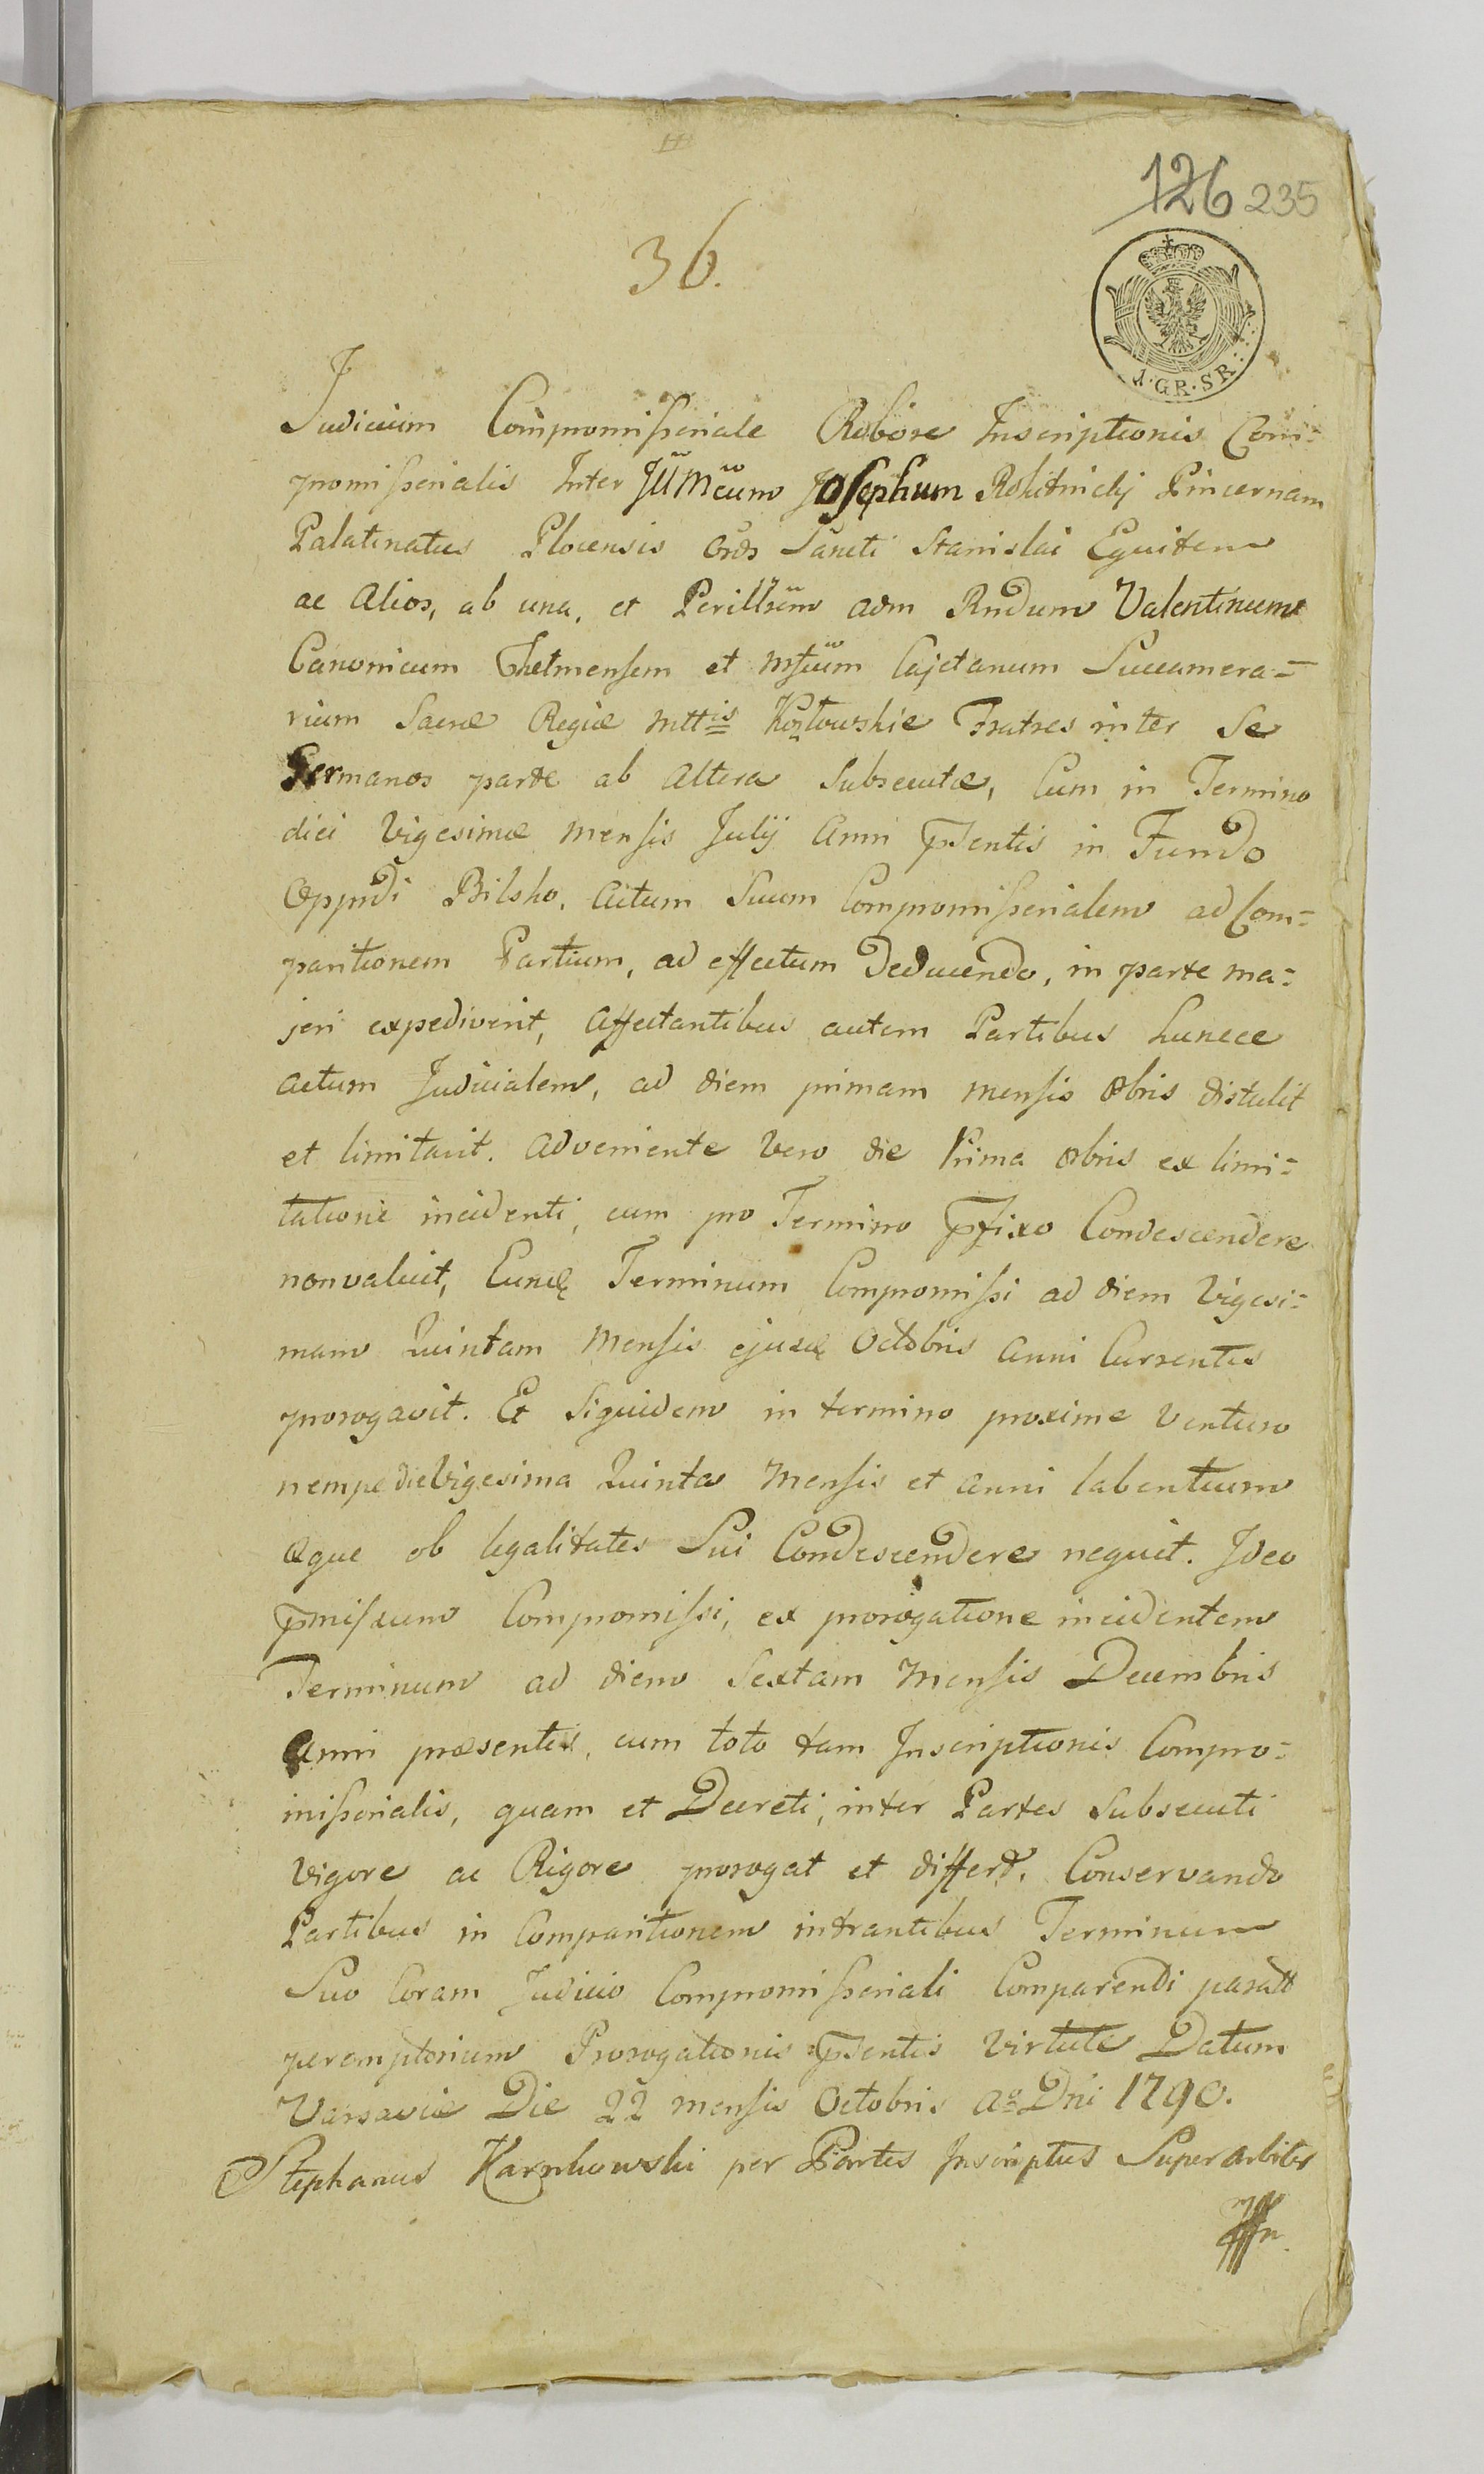 126 235
36.
1·GR·SR·
Judicium Compromisseriale Robore Inscriptionis Com=
promisserialis Inter Jll͠mM͠cum Josephum Rokitnicky Pincernam
Palatinatus Plocensis Ords Sancti Stanislai Equitem
ac Alios, ab una, et Perillr͠em adm Rndum Valentinum
Canonicum Chelmensem et Mf͠cum Cajetanum Succamera=
rium Sacræ Regiæ Mttis Kozłowskie Fratres inter se
Germanos parte ab altera Subsecutæ, Cum in Termino
diei Vigesimæ Mensis Julij Anni p͞sentis in Fundo
Oppidi Bilsko, Actum Suum Compromisserialem ad Com=
paritionem Partium, ad effectum Deducendo, in parte ma=
jori expediverit, Affectantibus autem Partibus huncce
actum Judicialem, ad diem primam Mensis 8bris distulit
et limitavit. Adveniente Vero die Prima 8bris ex limi=
tatione incidenti, cum pro Termino p͞fixo Condescendere
non valuit, Eundę Terminum Compromissi ad diem Vigesi=
mam Quintam Mensis ejusdę Octobris Anni Currentis
prorogavit. Et Siquidem in termino proxime Venturo
nempe die Vigesima Quinta Mensis et Anni labentium
æque ob legalitates Sui Condescendere nequit. Ideo
p͞missum Compromissi, ex prorogatione incidentem
Terminum ad diem Sextam Mensis Decembris
Anni præsentis, cum toto tam Inscriptionis Compro=
misserialis, quam et Decreti, inter Partes Subsecuti
Vigore ac Rigore prorogat et differt. Conservando
Partibus in Comparitionem intrantibus Terminum
Suo Coram Judicio Compromisseriali Comparendi paratt
peremptorium Prorogationis p͞sentis Virtute Datum
Varsaviæ Die 22 Mensis Octobris Ao Dni 1790.
Stephanus Karnkowski per Partes Inscriptus Superarbiter